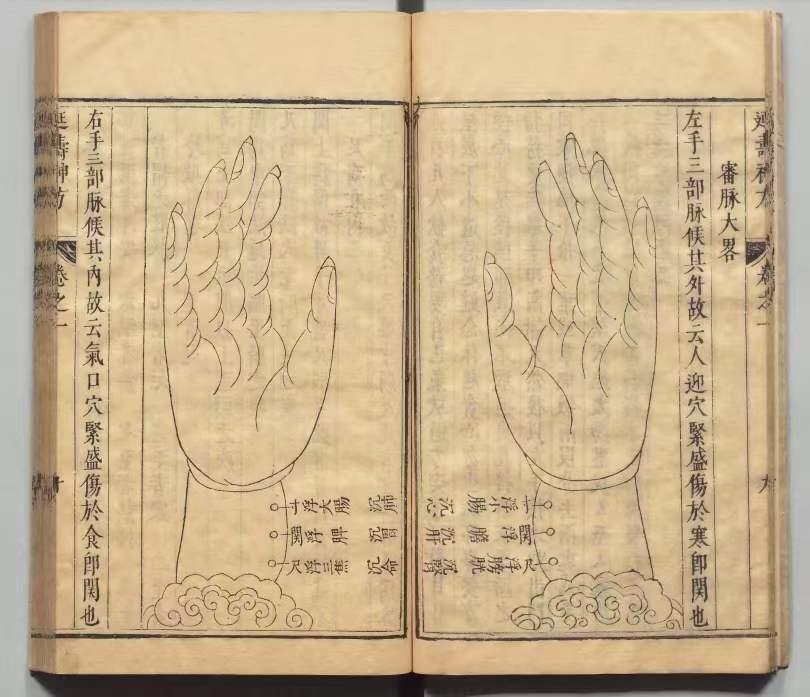 延壽神方 卷之一
審脉大畧
左手三部脉候其外故云人迎穴緊盛傷於寒即関也
寸浮小腸 沉心
関浮膽 沉肝
尺浮膀胱 沉腎
寸浮大腸 沉肺
関浮脾 沉胃
尺浮三焦 沉命
右手三部脉候其內故云氣口穴緊盛傷於食即関也
延壽神方 卷之一 十